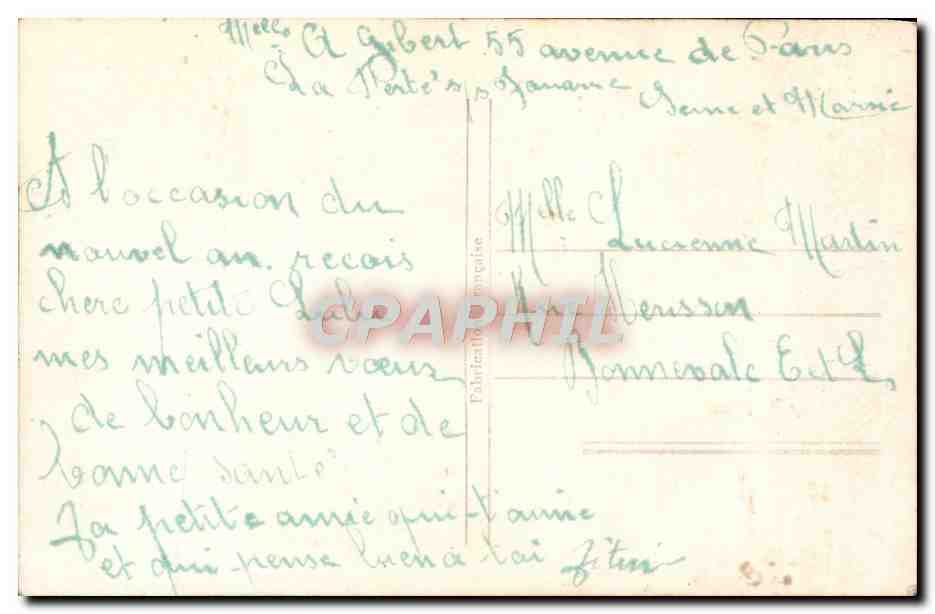 Melle A Gibert 55 avenue de Paris
La Ferté s/s Jouarre
Seine et Marne
A l'occasion du
nouvel an. recois
chere petite Lulu
mes meilleurs voeux
de bonheur et de
bonne santé
Ta petite amie qui t'aime
et qui pense bien à toi
Melle Lucienne Martin
Merisson
Bonnevale E et L
Fabrication Française
CPAPHIL